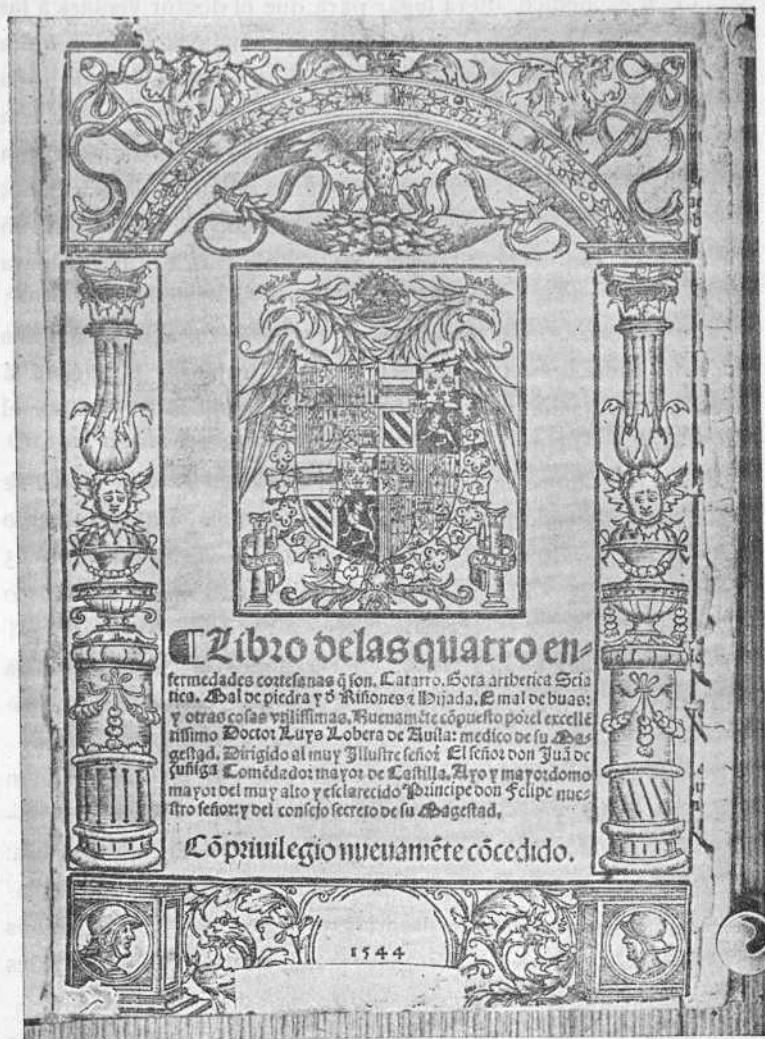 ¶Libro delas quatro en-
fermedades cortesanas q̃ son. Catarro. Gota arthetica Scia
tica. Mal de piedra y d̓ Riñones ⁊ Hijada. E mal de buas:
y otras cosas vtilissimas. Nueuamẽte cõpuesto porel excellẽ
tissimo Doctor Luys Lobera de Auila: medico de su Ma-
gestad. Dirigido al muy Illustre señor El señor don Juã de
çuñiga Comẽdador mayor de Castilla. Ayo y mayordomo
mayor del muy alto y esclarecido Principe don Felipe nue-
stro señor: y del consejo secreto de su Magestad.
Cõ priuilegio nueuamẽte cõcedido.
1544